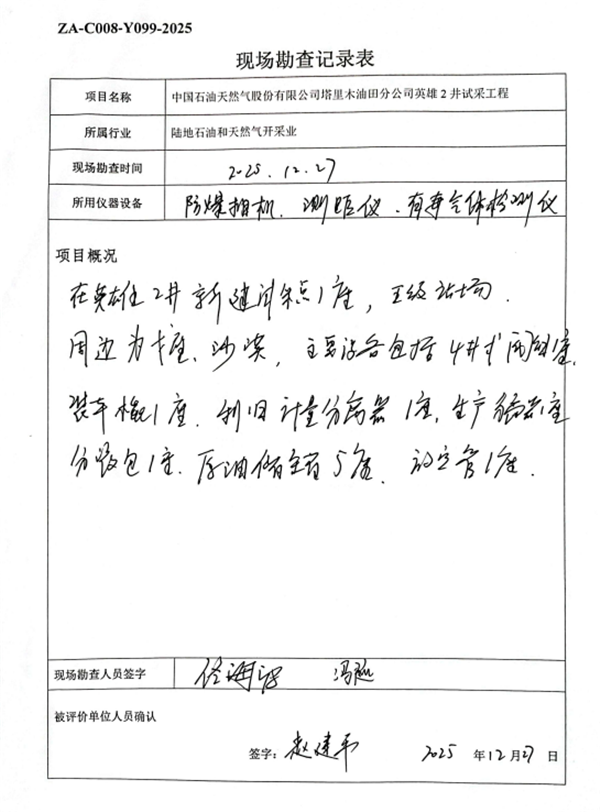 ZA-C008-Y099-2025
现场勘查记录表
项目名称 中国石油天然气股份有限公司塔里木油田分公司英雄2井试采工程
所属行业 陆地石油和天然气开采业
现场勘查时间 2025.12.27
所用仪器设备 防爆相机、测距仪、有毒气体检测仪
项目概况
在英雄2井新建试采点1座,五级站场.
周边为戈壁、沙漠,主要设备包括4井式阀组1座,
装车橇1座.利旧计量分离器1座,生产分离器1座
1座.原油储罐5座.放空管1座.
现场勘查人员签字
被评价单位人员确认
签字:赵建平 2025年12月27日